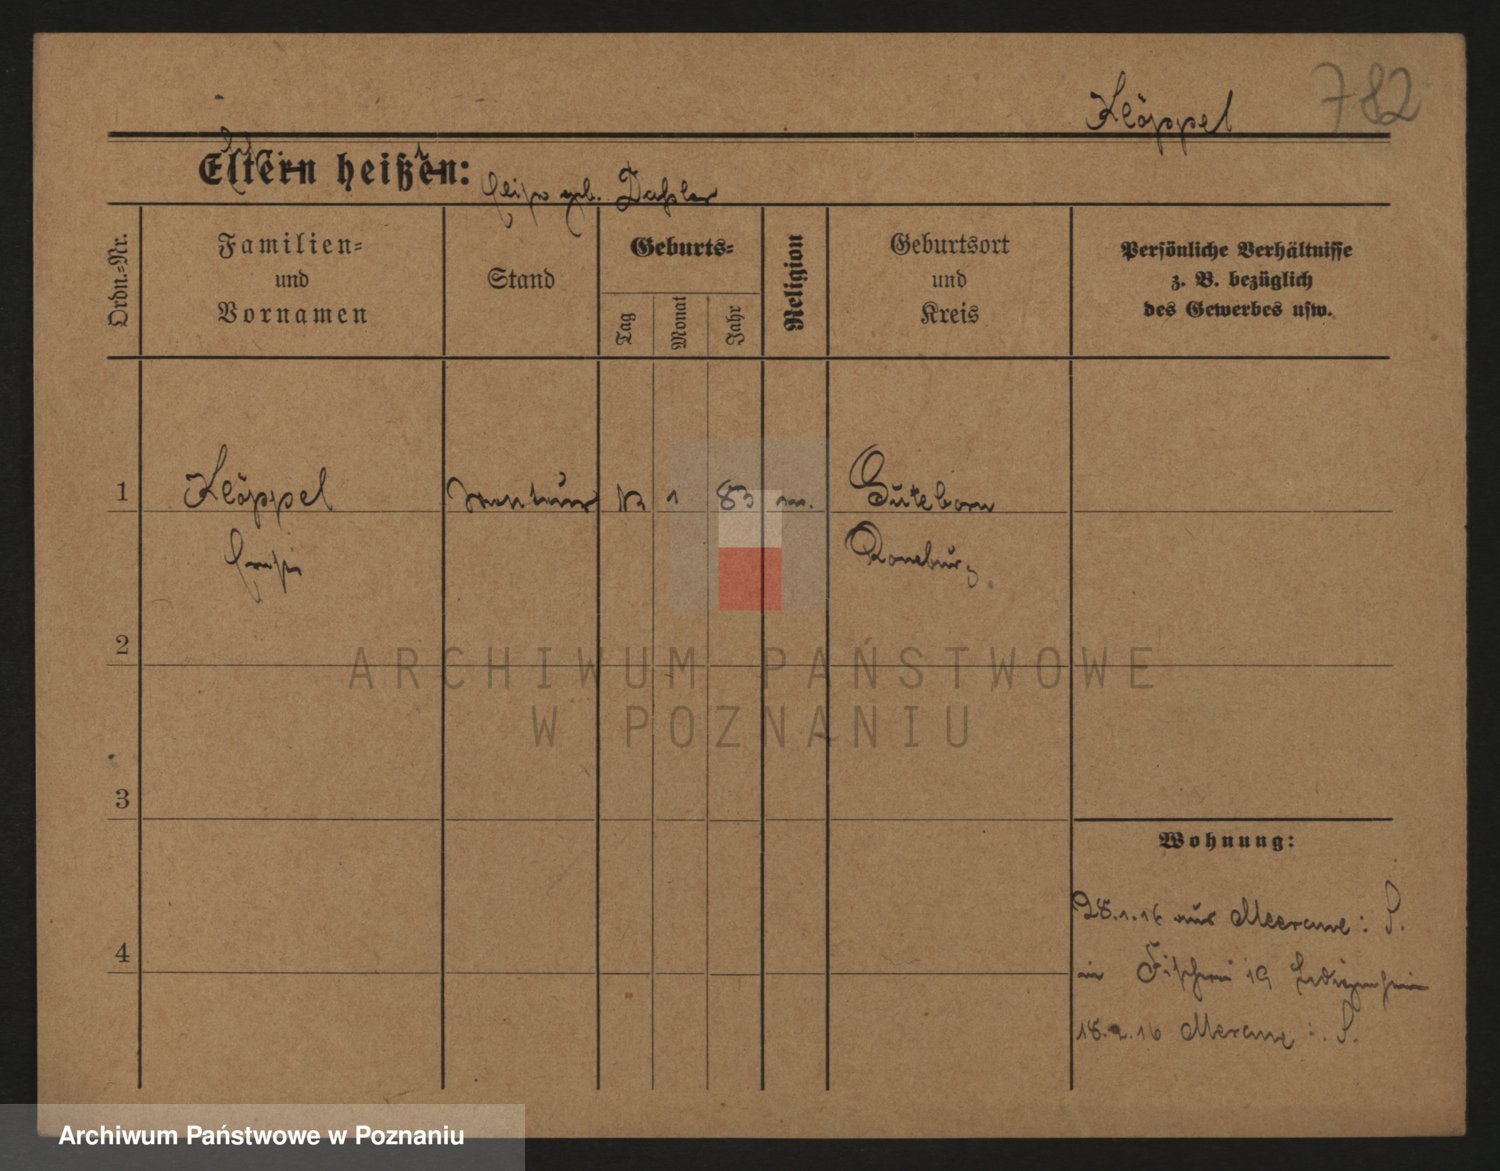 Kläppel 782
Eltern heißen:
geb.
Ordn.=Nr.
Familien=
und
Vornamen
Stand
Geburts=
Tag
Monat
Jahr
Religion
Geburtsort
und
Kreis
Persönliche Verhältnisse
z. B. bezüglich
des Gewerbes usw.
1
Kläppel
Monteur
1
83
Guteborn
Ronneburg
2
3
4
Wohnung:
28.1.16 aus Meerane i. S.
19 Ledigenheim
18.2.16 Merane i. S.
ARCHIWUM PAŃSTWOWE
W POZNANIU
Archiwum Państwowe w Poznaniu